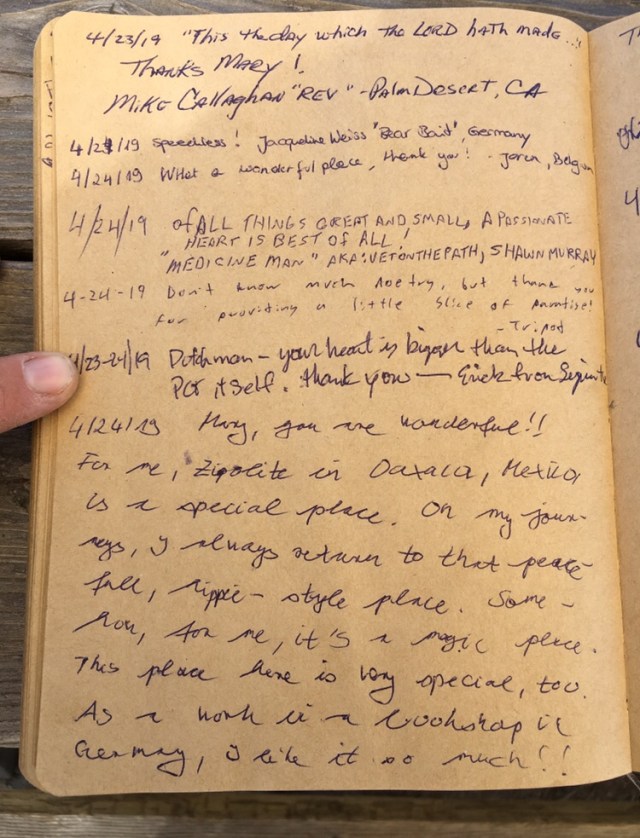 4/23/19 "This the day which the LORD hath made...!
Thanks Mary!
Mike Callaghan "REV" - Palm Desert, CA
4/24/19 speechless! Jacqueline Weiss "Bear Bait", Germany
4/24/19 What a wonderful place, thank you! - Joren, Belgium
4/24/19 Of ALL THINGS GREAT AND SMALL, A PASSIONATE
HEART IS BEST OF ALL!
"MEDICINE MAN" AKA: VETONTHEPATH, SHAWN MURRAY
4-24-19 Don't know much poetry, but thank you
for providing a little slice of paradise!
- Tripod
4/23-24/19 Dutchman - your heart is bigger than the
PCT itself. thank you — Erick from
4/24/19 Mary, you are wonderful!!
For me, Zipolite in Oaxaca, Mexico,
is a special place. On my jour-
neys, I always return to that peace-
full, hippie-style place. Some-
how, for me, it's a magic place.
This place here is very special, too.
As a work in a bookshop in
Germany, I like it so much!!